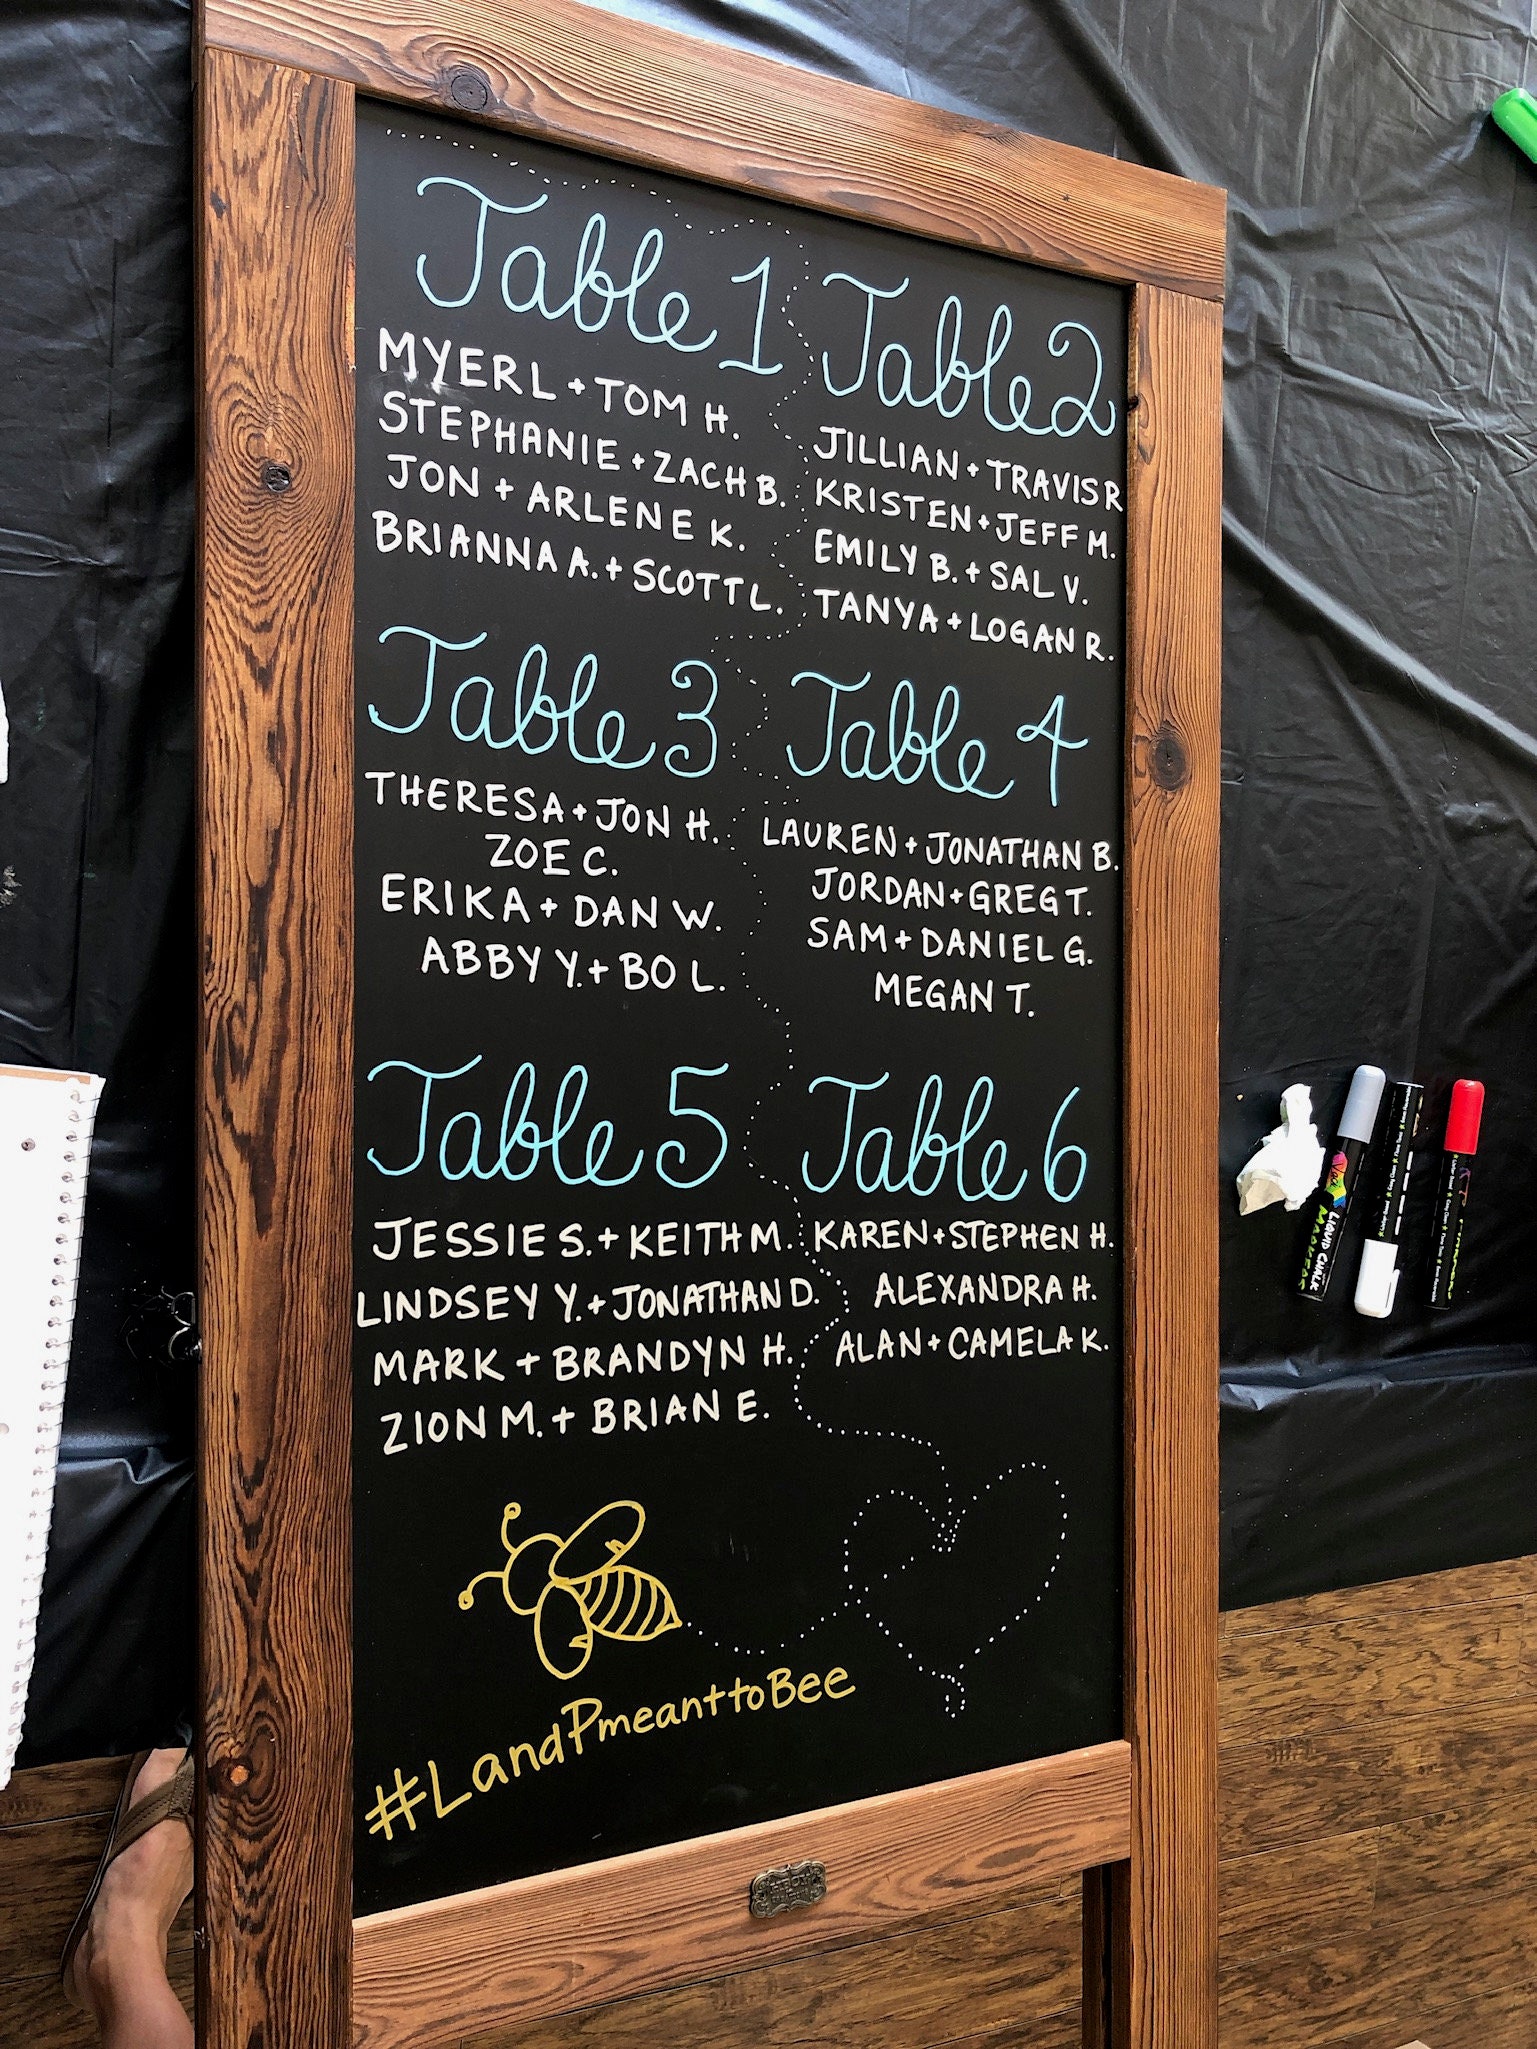 Table 1
MYERL + TOM H.
STEPHANIE + ZACH B.
JON + ARLENE K.
BRIANNA A. + SCOTT L.
Table 2
JILLIAN + TRAVIS R
KRISTEN + JEFF M.
EMILY B. + SAL V.
TANYA + LOGAN R.
Table 3
THERESA + JON H.
ZOE C.
ERIKA + DAN W.
ABBY Y. + BO L.
Table 4
LAUREN + JONATHAN B.
JORDAN + GREG T.
SAM + DANIEL G.
MEGAN T.
Table 5
JESSIE S. + KEITH M.
LINDSEY Y. + JONATHAN D.
MARK + BRANDYN H.
ZION M. + BRIAN E.
Table 6
KAREN + STEPHEN H.
ALEXANDRA H.
ALAN + CAMELA K.
#LandPmeanttoBee
LIQUID CHALK
MARKERS